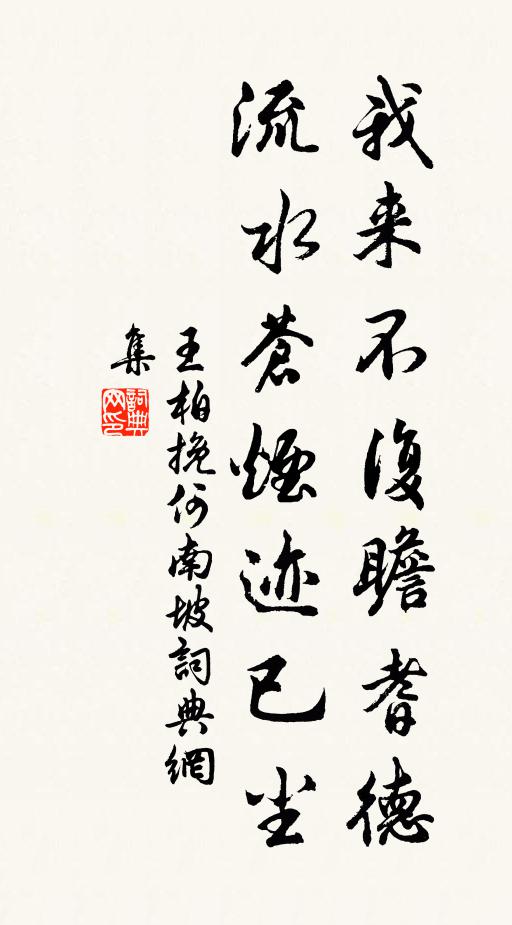 我来不復瞻耆德
流水蒼煙迹已尘
王柏挽何南坡詞典網
集
詞典
网印